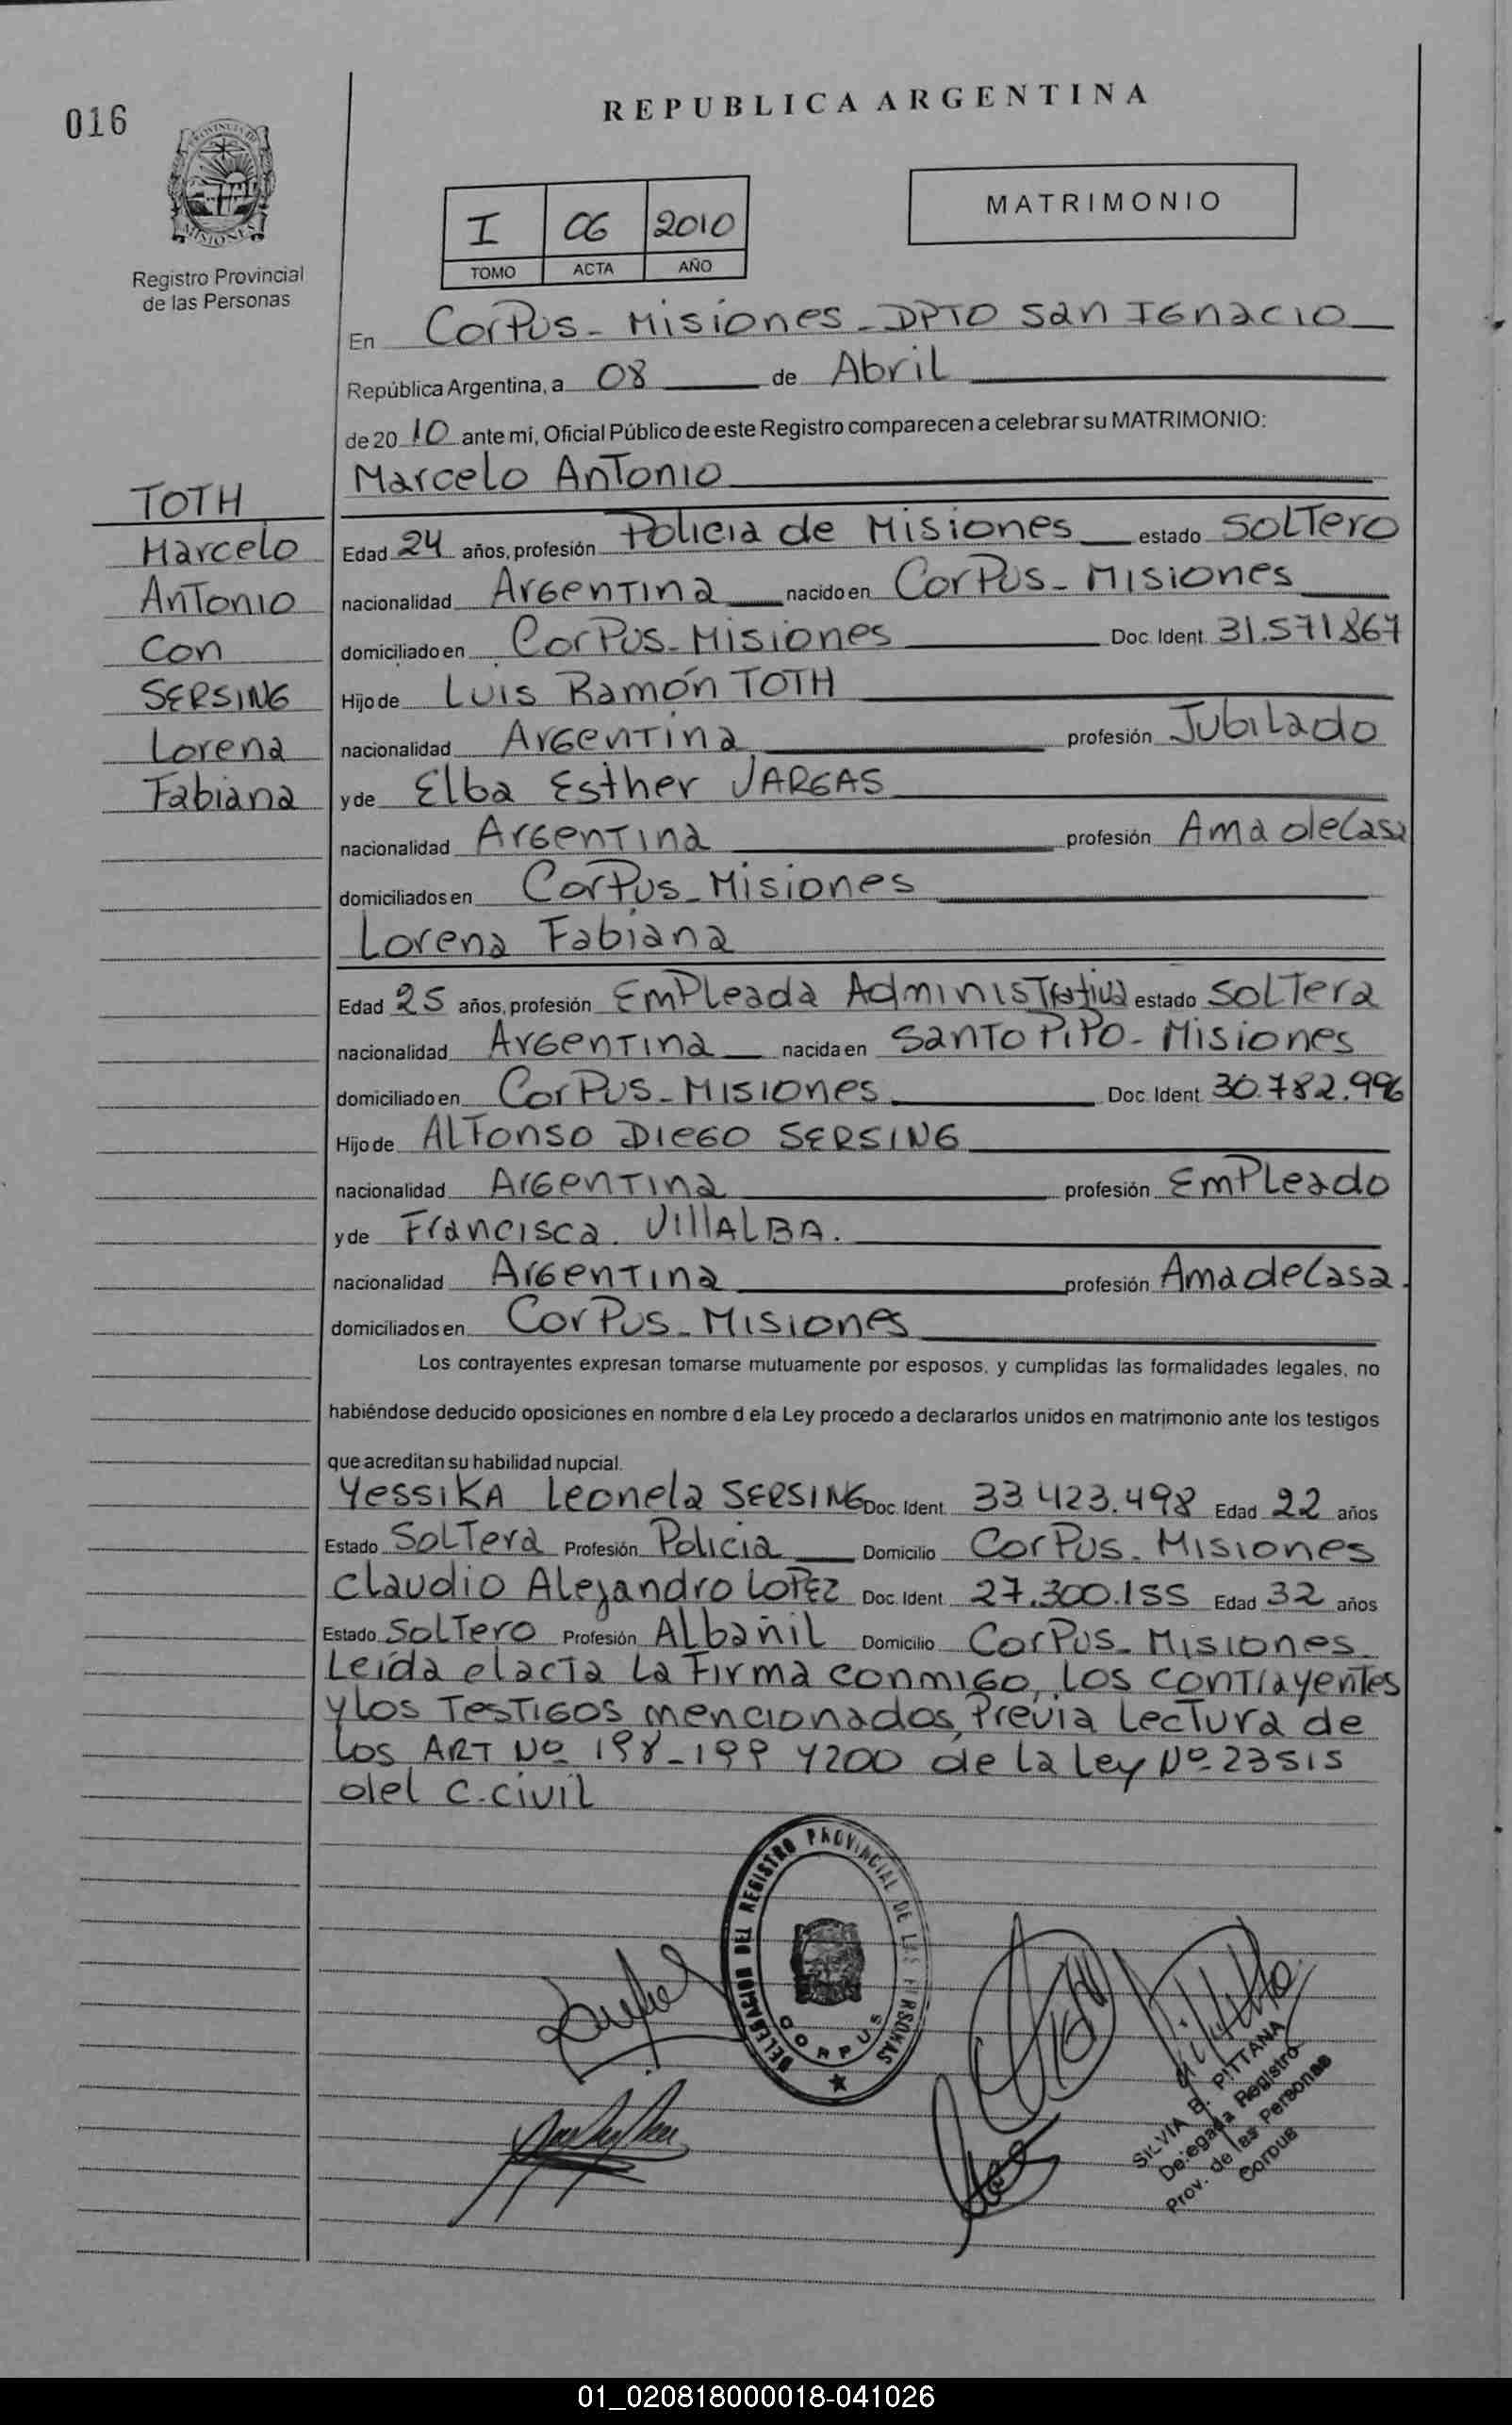 016
REPUBLICA ARGENTINA
PROVINCIA DE
MISIONES
Registro Provincial
de las Personas
I 06 2010
TOMO ACTA AÑO
MATRIMONIO
En CorPus - Misiones - DPTO San IGnacio
República Argentina, a 08 de Abril
de 20 10 ante mí, Oficial Público de este Registro comparecen a celebrar su MATRIMONIO:
TOTH
Marcelo
AnTonio
Con
SERSING
Lorena
Fabiana
Marcelo AnTonio
Edad 24 años, profesión Policia de Misiones estado SOLTero
nacionalidad ArGenTina nacido en CorPus - Misiones
domiciliado en CorPus - Misiones Doc. Ident. 31.571867
Hijo de Luis Ramón TOTH
nacionalidad ArGenTina profesión Jubilado
y de Elba Esther VARGAS
nacionalidad ArGenTina profesión Ama de Casa
domiciliados en CorPus - Misiones
Lorena Fabiana
Edad 25 años, profesión EmPleada AdminisTrativa estado SolTera
nacionalidad ArGenTina nacida en SanTo PiPo - Misiones
domiciliado en CorPus - Misiones Doc. Ident. 30.782.996
Hijo de ALFonso DIeGO SERSING
nacionalidad ArGenTina profesión EmPleado
y de Francisca. VillALBA.
nacionalidad ArGenTina profesión Ama de Casa.
domiciliados en CorPus - Misiones
Los contrayentes expresan tomarse mutuamente por esposos, y cumplidas las formalidades legales, no
habiéndose deducido oposiciones en nombre d ela Ley procedo a declararlos unidos en matrimonio ante los testigos
que acreditan su habilidad nupcial.
YessiKA Leonela SERSING Doc. Ident. 33.423.498 Edad 22 años
Estado SolTera Profesión Policia Domicilio CorPus - Misiones
Claudio Alejandro LOPEZ Doc. Ident. 27.300.155 Edad 32 años
Estado SolTero Profesión Albañil Domicilio CorPus - Misiones
Leída el acTa La Firma conmiGo, Los conTrayenTes
y Los TesTiGos mencionados, Previa LecTura de
Los ART Nº 198-199 y 200 de la Ley Nº 23515
del C.Civil
DELEGACION DEL REGISTRO PROVINCIAL DE LAS PERSONAS
CORPUS
SILVIA B. PITTANA
Delegada Registro
Prov. de las Personas
Corpus
01_020818000018-041026